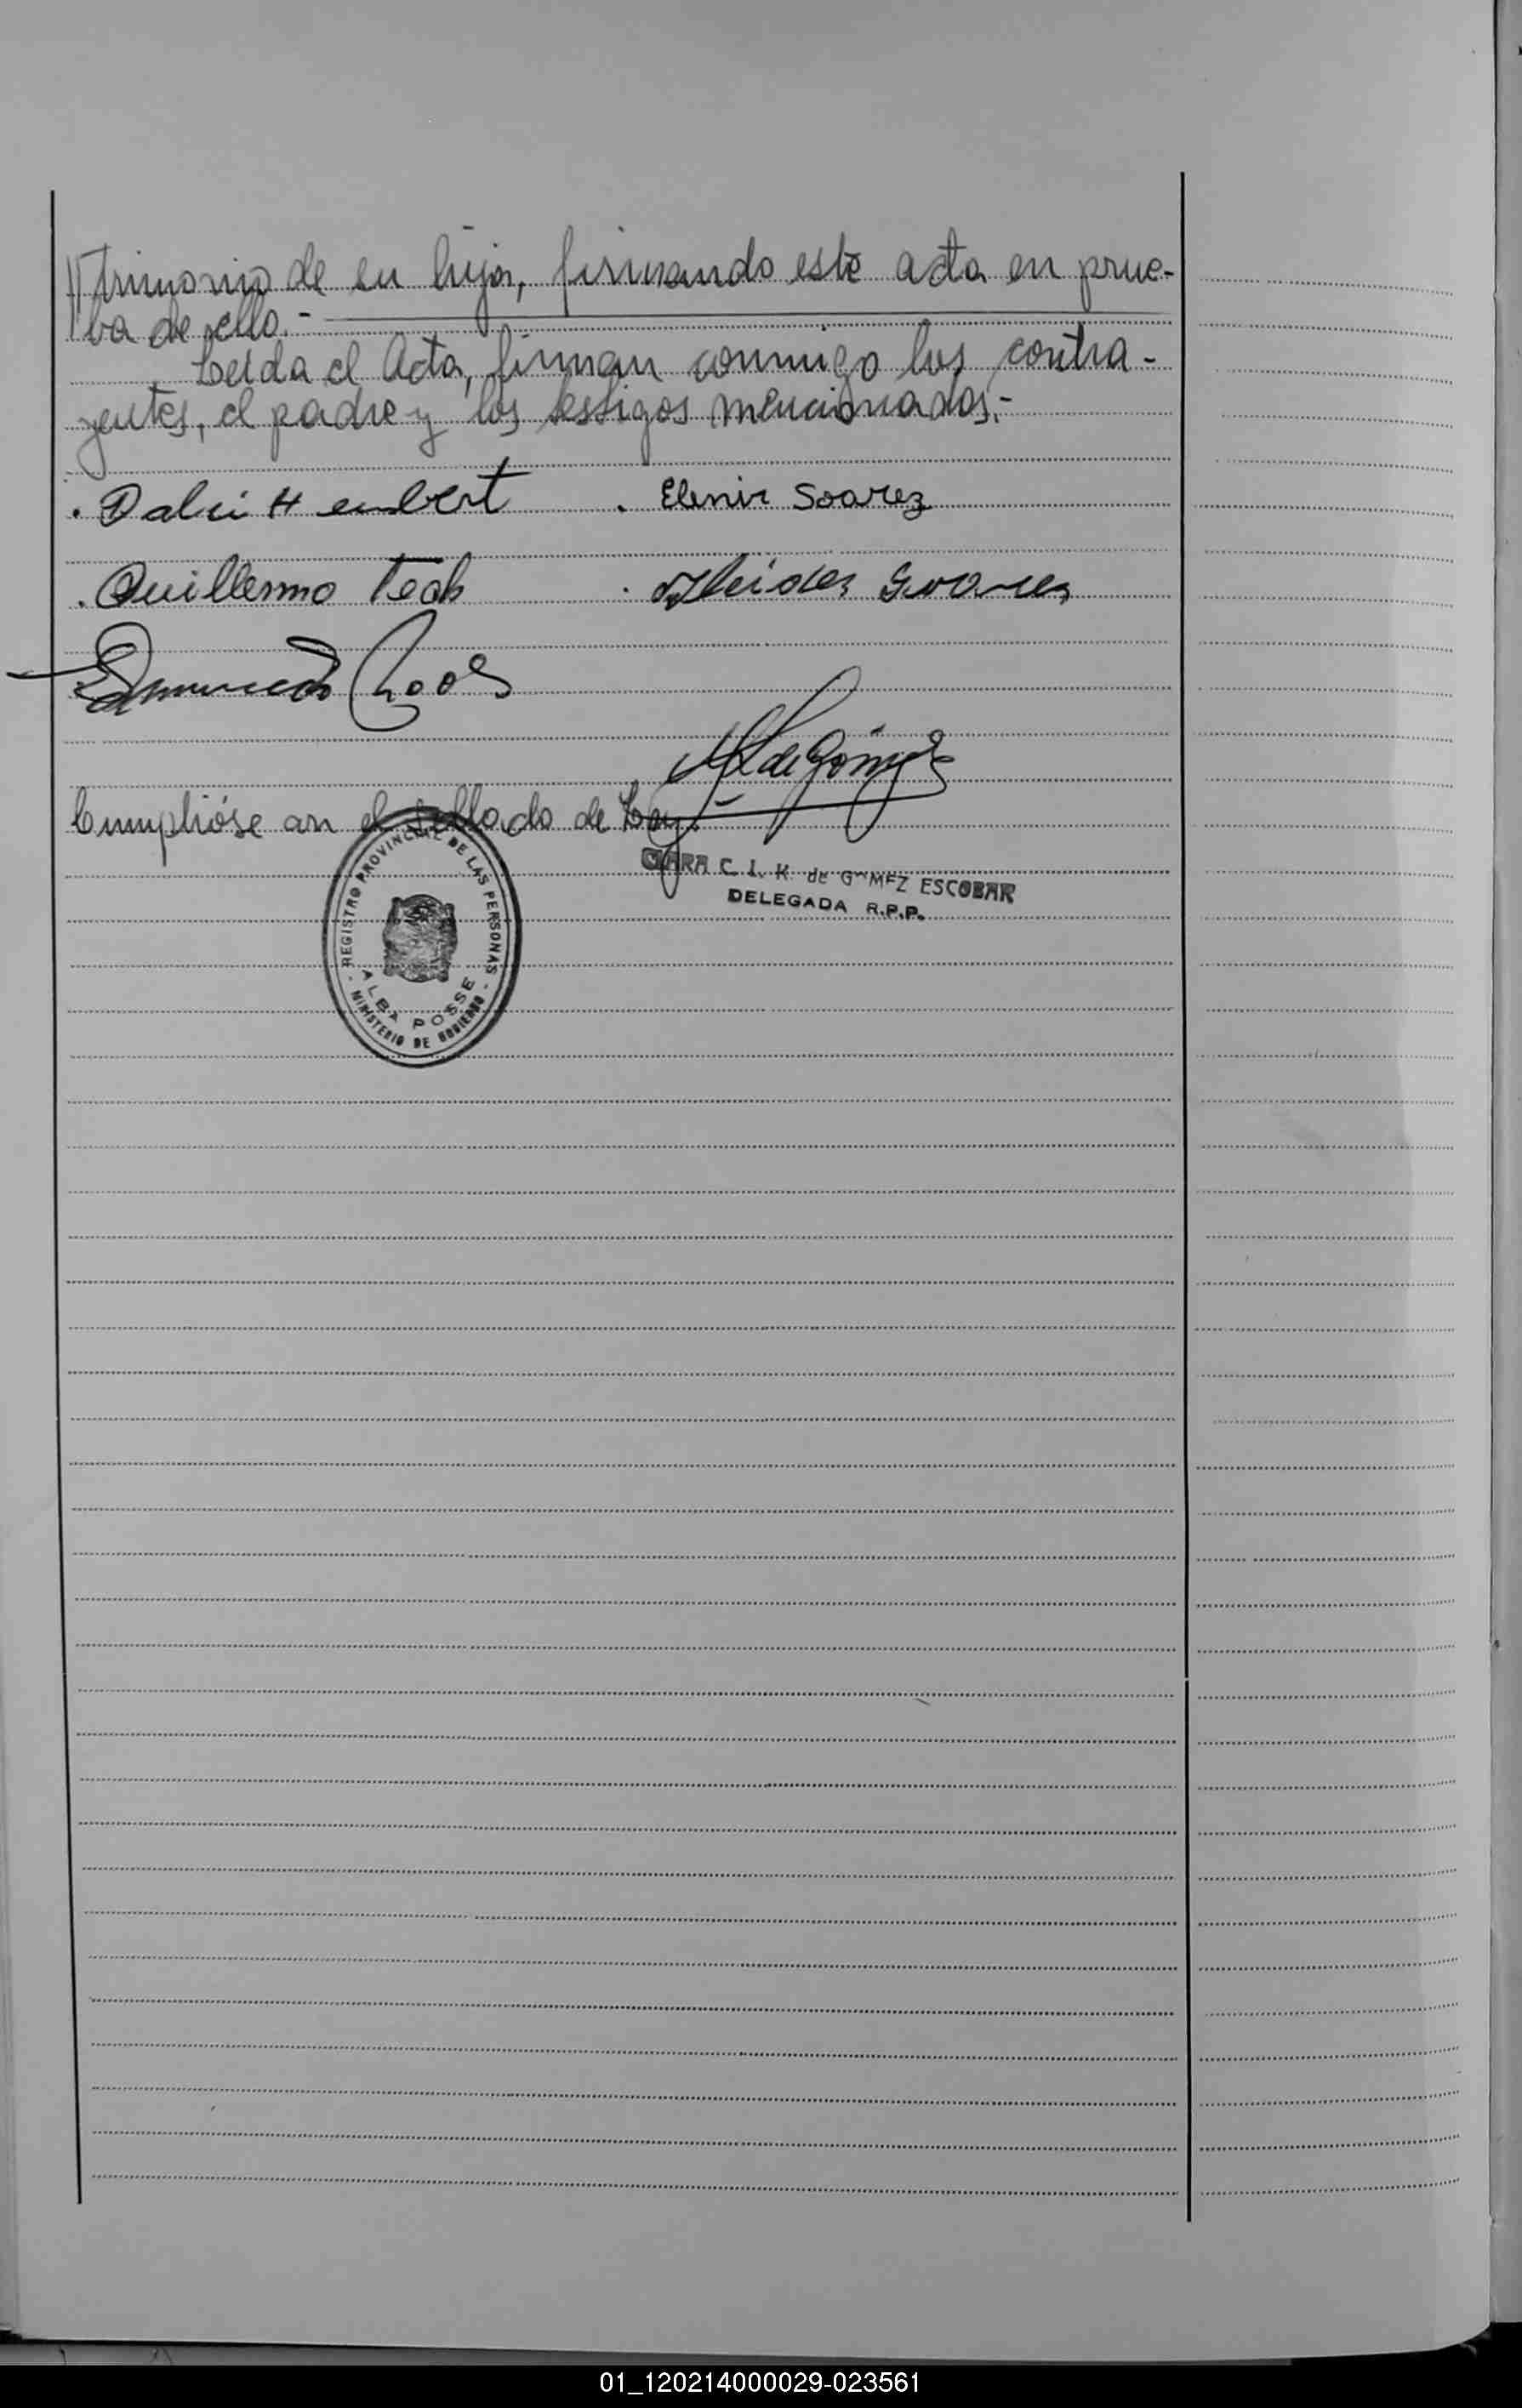 //trimonio de su hija, firmando este acta en prue-
ba de ello.-
Leída el Acta, firman conmigo los contra-
yentes, el padre y los testigos mencionados.-
. Dalci Hembert . Elenir Soarez
. Guillermo Tech .
Edmundo Roos
Cumplióse con el sellado de Ley.-
CLARA C. I. K. de GOMEZ ESCOBAR
DELEGADA R.P.P.
REGISTRO PROVINCIAL DE LAS PERSONAS
ALBA POSSE
- MINISTERIO DE GOBIERNO -
01_120214000029-023561